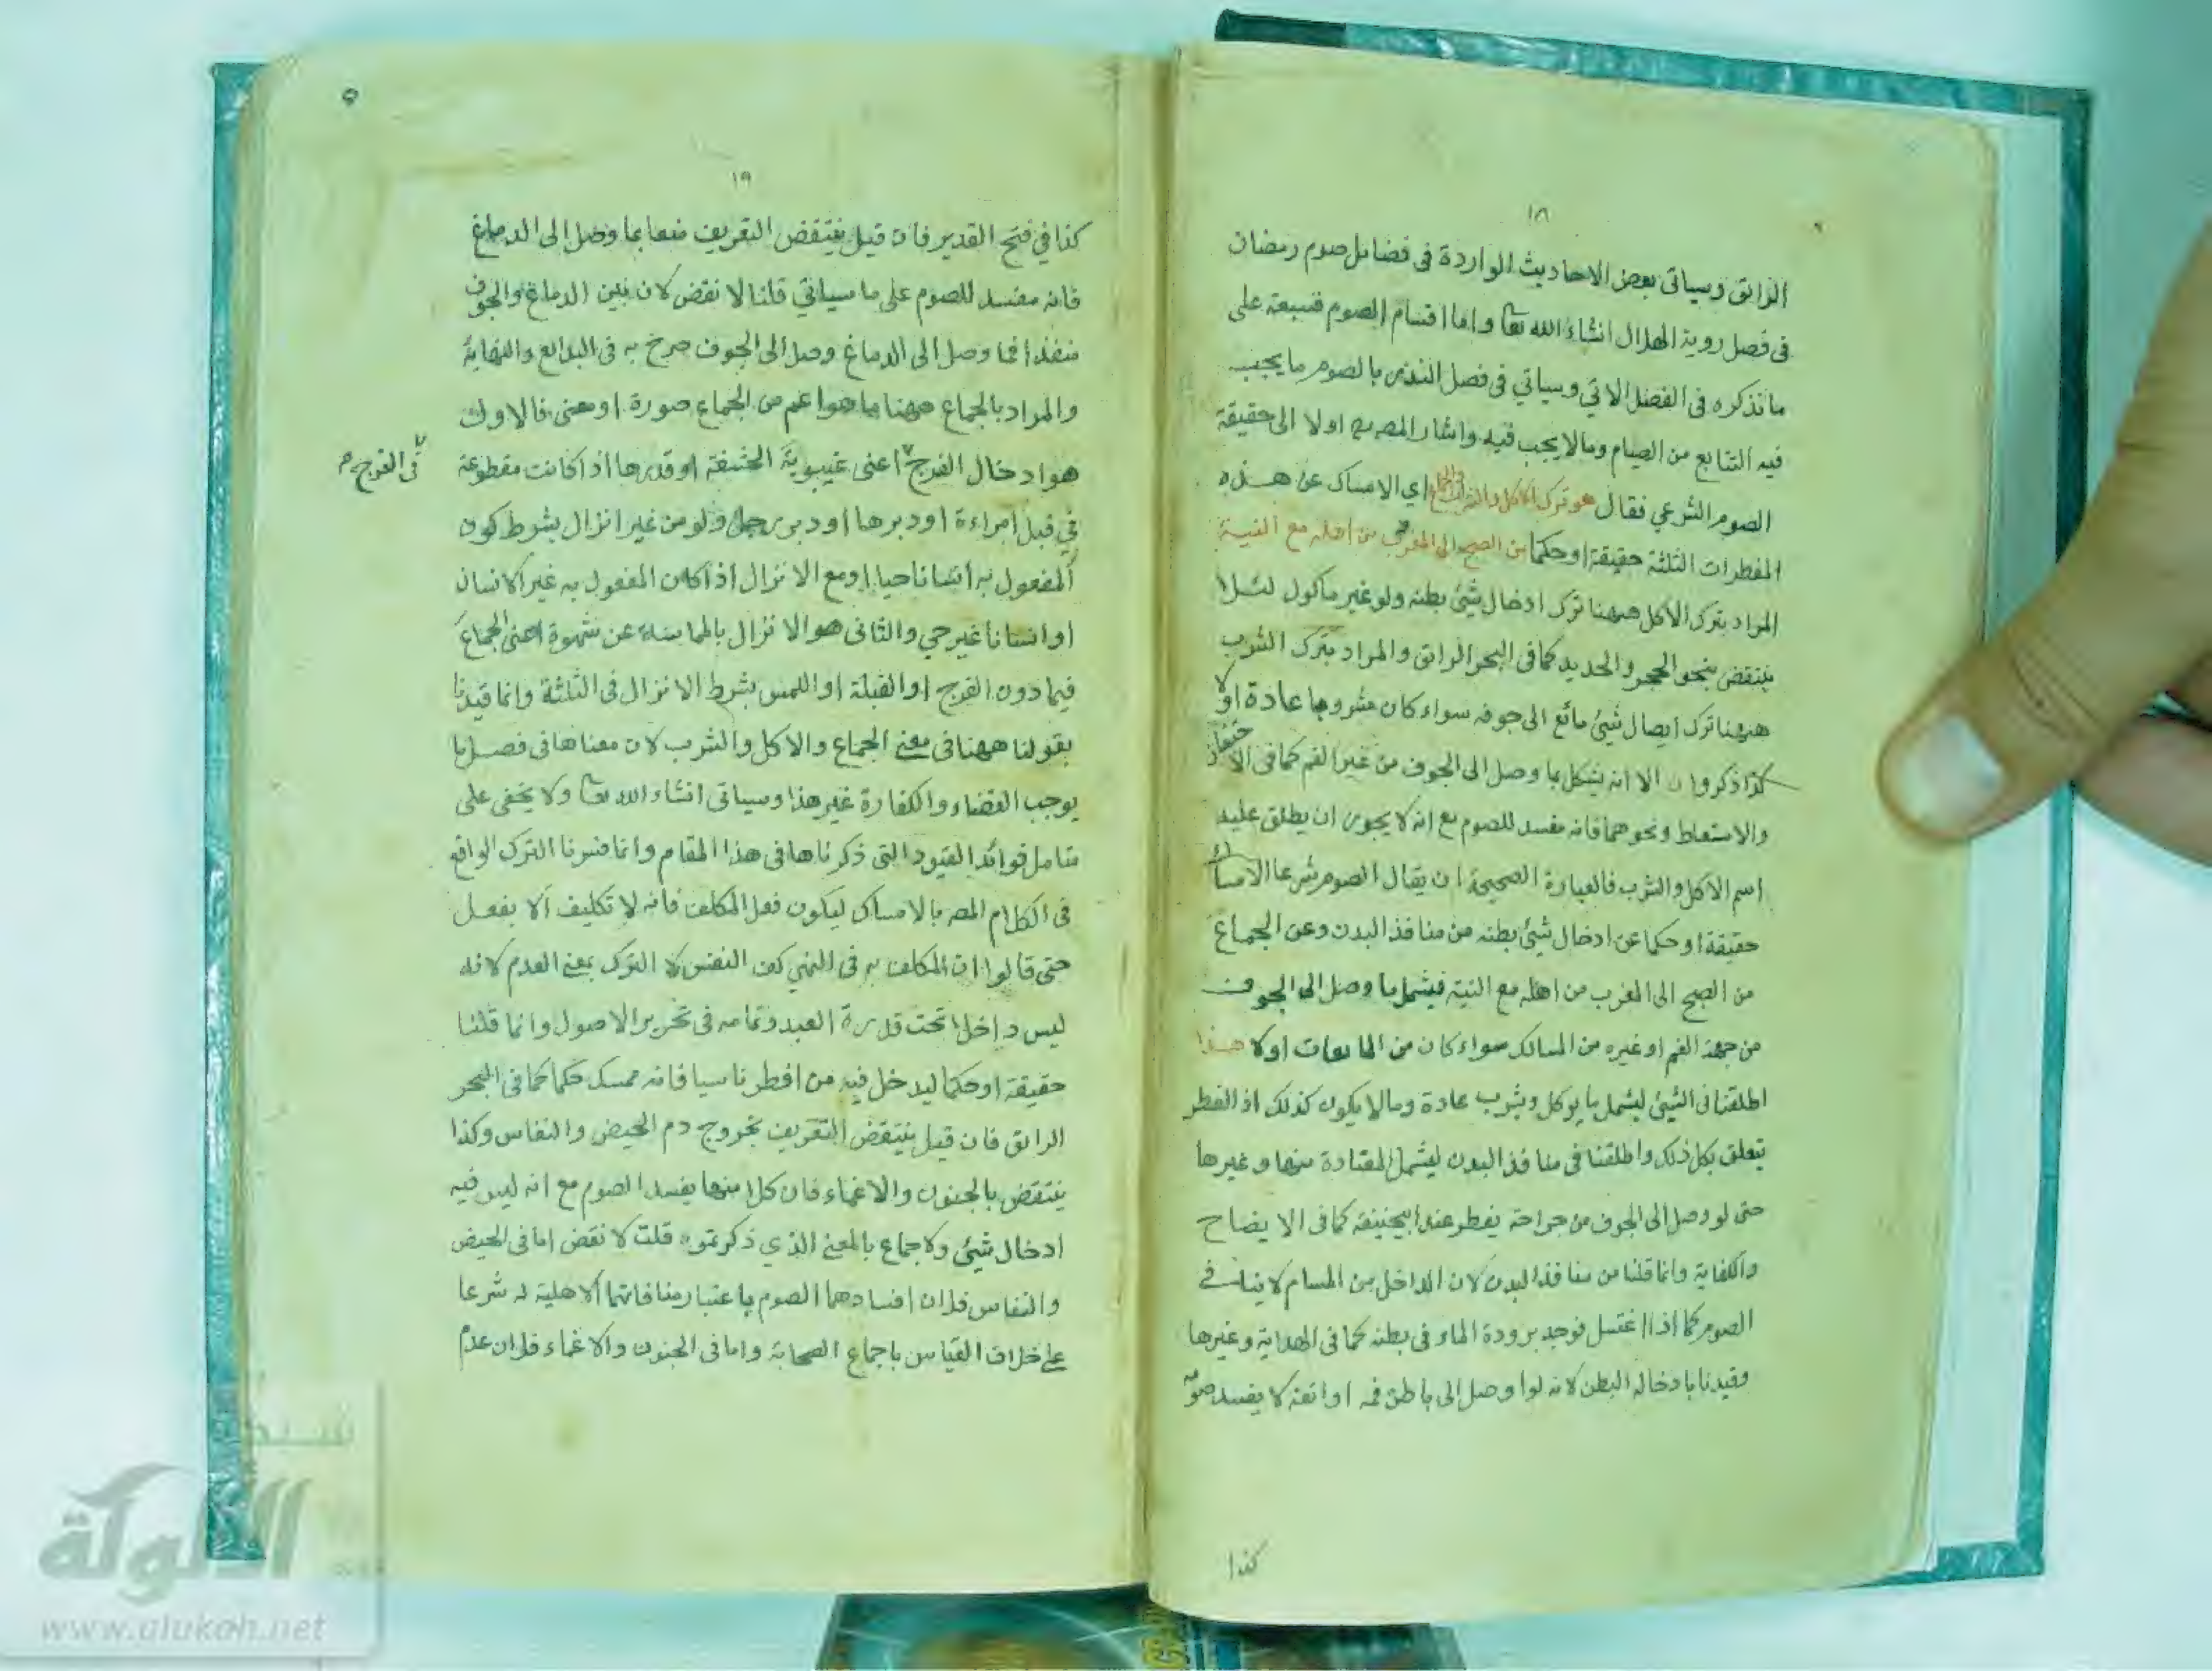 ١٨
الرائق وسياتى بعض الاحاديث الواردة فى فضائل صوم رمضان
فى فصل روية الهلال انشاء الله تعا واما اقسام الصوم فسبعة على
ما نذكره فى الفصل الاتي وسياتي في فصل النذر بالصوم ما يجب
فيه التتابع من الصيام وما لا يجب فيه واشار المص اولا الى حقيقة
الصوم الشرعي فقال هو ترك الاكل والشرب والجماع اي الامساك عن هذه
المفطرات الثلثة حقيقة او حكما من الصبح الى المغرب من اهله مع النية
المراد بترك الاكل ههنا ترك ادخال شئ بطنه ولو غير ماكول لئلا
ينتقض بنحو الحجر والحديد كما فى البحر الرائق والمراد بترك الشرب
ههنا ترك ايصال شئ مائع الى جوفه سواء كان مشروبا عادة اولا
كذا ذكروا الا انه يشكل بما وصل الى الجوف من غير الفم كما فى الاحتقان
والاستعاط ونحوهما فانه مفسد للصوم مع انه لا يجوز ان يطلق عليه
اسم الاكل والشرب فالعبارة الصحيحة ان يقال الصوم شرعا الامساك
حقيقة او حكما عن ادخال شئ بطنه من منافذ البدن وعن الجماع
من الصبح الى المغرب من اهله مع النية فيشمل ما وصل الى الجوف
من جهة الفم او غيره من المسالك سواء كان من المايعات اولا هذا
اطلقنا فى الشئ ليشمل ما يوكل ويشرب عادة وما لا يكون كذلك اذ الفطر
يتعلق بكل ذلك واطلقنا فى منافذ البدن ليشمل المعتادة منها وغيرها
حتى لو وصل الى الجوف من جراحة يفطر عند ابيحنيفة كما فى الايضاح
والكفاية وانما قلنا من منافذ البدن لان الداخل من المسام لا ينافي
الصوم كما اذا اغتسل فوجد برودة الماء فى بطنه كما فى الهداية وغيرها
وقيدنا بادخاله البطن لانه لوا وصل الى باطن فمه او انفه لا يفسد صومه
كذا
١٩
كذا في فتح القدير فان قيل ينتقض التعريف منعا بما وصل الى الدماغ
فانه مفسد للصوم على ما سياتي قلنا لا نقض لان بين الدماغ والجوف
منفذا فما وصل الى الدماغ وصل الى الجوف صرح به فى البدائع والنهاية
والمراد بالجماع ههنا ما هوا عم من الجماع صورة او معنى فالاول
هو ادخال الفرج اعنى غيبوبة الحشفة او قدرها اذا كانت مقطوعة
فى الفرج
في قبل امراءة او دبرها او دبر رجل ولو من غير انزال بشرط كون
المفعول به انسانا حيا او مع الانزال اذا كان المفعول به غير الانسان
او انسانا غير حي والثانى هو الانزال بالمماسة عن شهوة اعنى الجماع
فيما دون الفرج او القبلة او اللمس بشرط الانزال فى الثلثة وانما قيدنا
بقولنا ههنا فى معنى الجماع والاكل والشرب لان معناها فى فصل ما
يوجب القضاء والكفارة غير هذا وسياتى انشاء الله تعا ولا يخفى على
متامل فوائد القيود التى ذكرناها فى هذا المقام وانما فسرنا الترك الواقع
فى الكلام المص بالامساك ليكون فعل المكلف فانه لا تكليف الا بفعل
حتى قالوا ان المكلف به فى النهي كف النفس لا الترك بمعنى العدم لانه
ليس داخلا تحت قدرة العبد وتمامه فى تحرير الاصول وانما قلنا
حقيقة او حكما ليدخل فيه من افطر ناسيا فانه ممسك حكما كما فى البحر
الرائق فان قيل ينتقض التعريف بخروج دم الحيض والنفاس وكذا
ينتقض بالجنون والاغماء فان كلا منها يفسد الصوم مع انه ليس فيه
ادخال شئ ولا جماع بالمعنى الذي ذكرتموه قلت لا نقض اما فى الحيض
والنفاس فلان افسادهما الصوم باعتبار منافاتهما الاهلية له شرعا
على خلاف القياس باجماع الصحابة واما فى الجنون والاغماء فلان عدم
شبكة
الألوكة
www.alukah.net